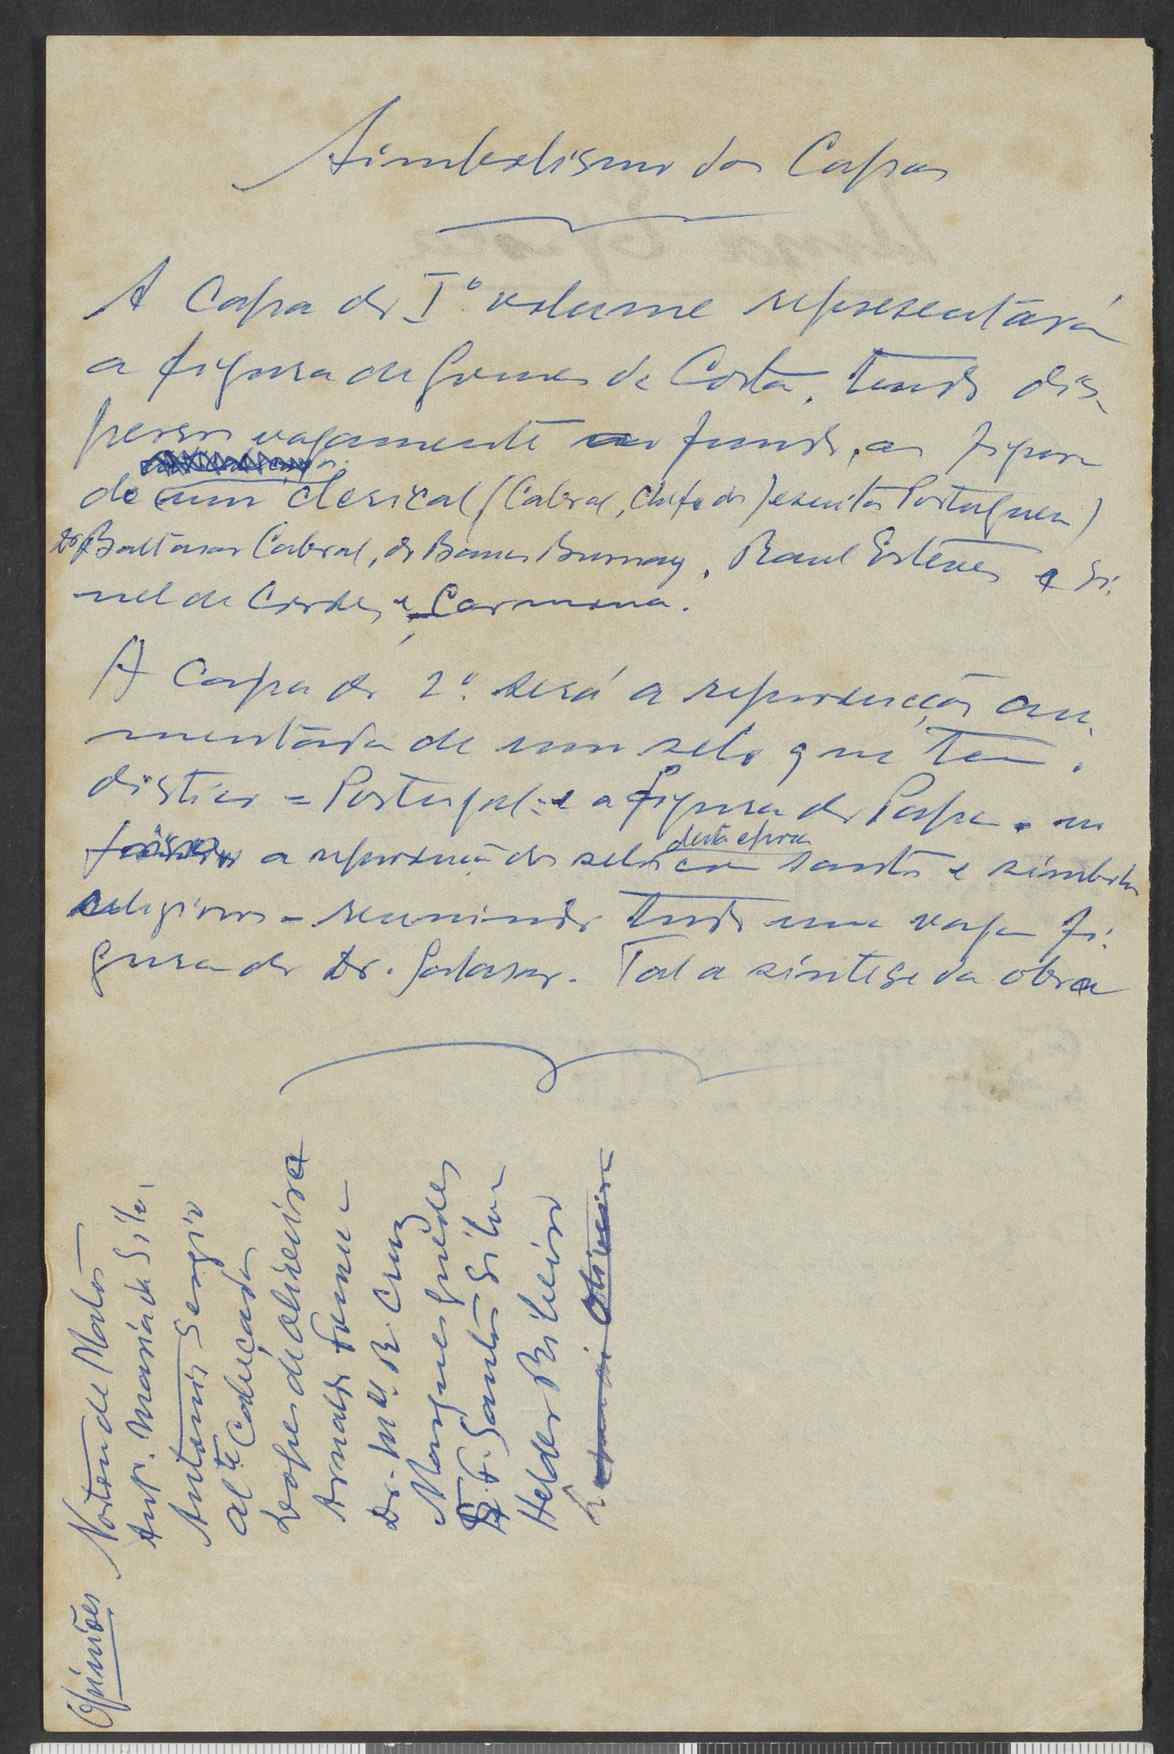 Simbolismo das Capas
A Capa do Iº volume representará
a figura de Gomes da Costa, tendo dis-
persos vagamente ao fundo, as figuras
de um clerical (Cabral, Chefe dos Jesuitas Portugueses)
Dr Baltasar Cabral, do Banco Burnay, Raul Esteves e Si-
nel de Cordes, e Carmona.
A Capa do 2º será a reprodução au-
mentada de um selo que tem o
distico = Portugal = e a figura do Papa. no
a reprodução dos selos desta epoca com santos e simbolos
religiosos = reunindo tudo uma vaga fi-
gura do Dr. Salazar. Tal a síntese da obra
Opiniões
Norton de Matos
Antº. Maria da Silva
Antonio Sergio
Alte Cabeçadas
Lopes de Oliveira
Arnaldo
Dr. Mel. R. Cruz
Marques Guedes
F. Santos Silva
Helder Ribeiro
Oliveira